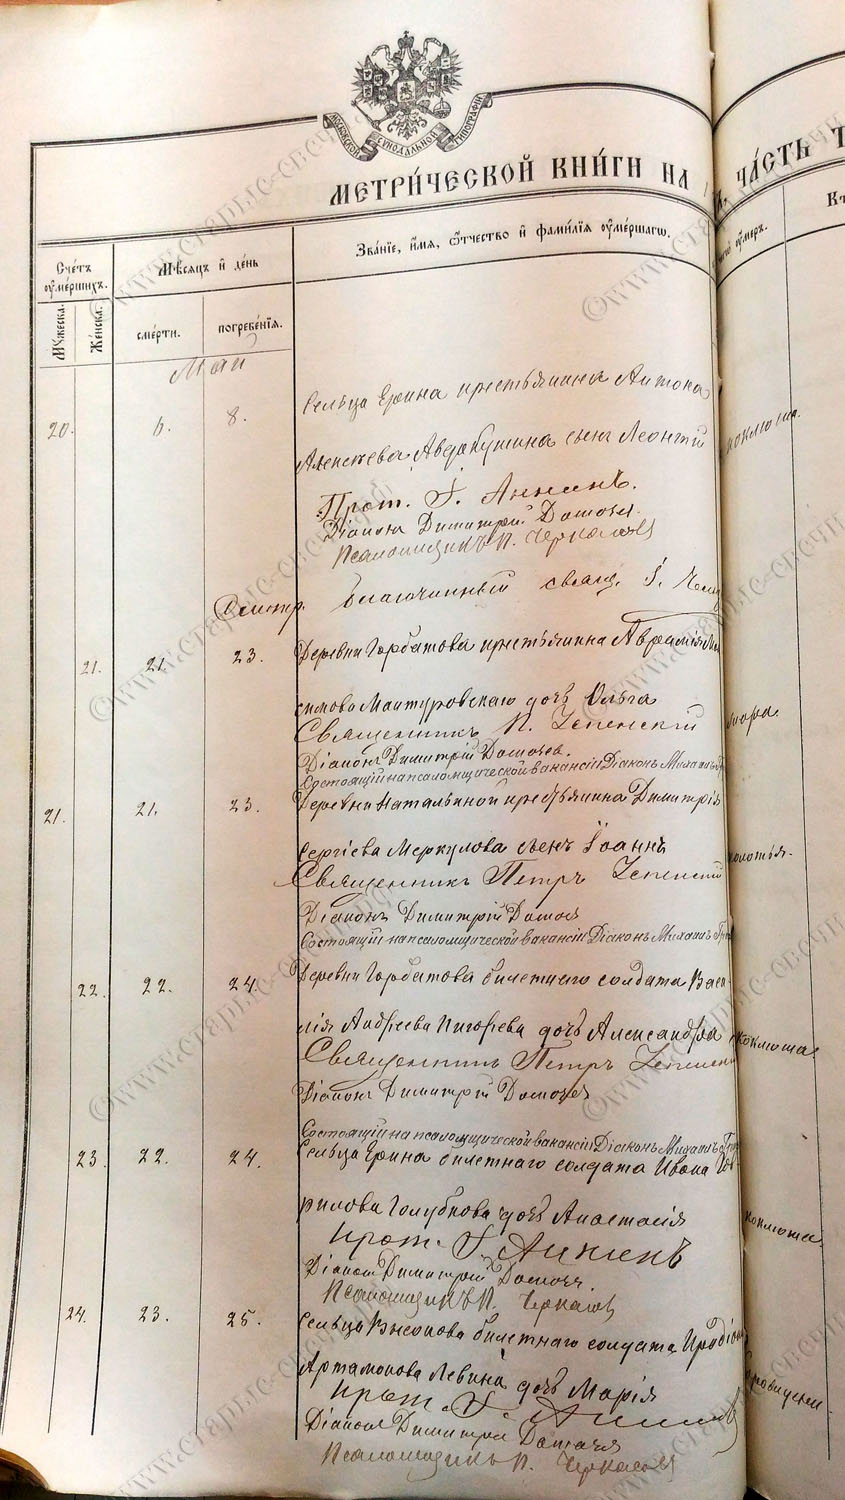 МОСКОВСКОЙ СѴНОДАЛЬНОЙ ТИПОГРАФІИ
МЕТРИ́ЧЕСКОЙ КНИ́ГИ НА 1
ЧА́СТЬ Т
Сче́тъ оу҆ме́ршихъ.
Мѣ́сяцъ и҆ де́нь
Зва́нїе, и҆́мя, ѻ҆́тчество и҆ фами́лїя оу҆ме́ршагѡ.
оу҆́меръ.
Мꙋ́жеска.
Же́нска.
сме́рти.
погребе́нїя.
Май
20. 6. 8. Сельца Ерина крестьянина Антона
Алексѣева Авдакушина сынъ Леонтій
коклюша.
Прот. І. Аннинъ.
Діаконъ Димитрій
Псаломщикъ П. Черкасовъ
Благочинный свящ. І.
21. 21. 23. Деревни Горбатова крестьянина Авраамія Мак
симова Мантуровскаго дочь Ольга
Священникъ П. Успенскій
Діаконъ Димитрій
Состоящій на псаломщической вакансіи Діаконъ Михаилъ
21. 21. 23. Деревни Натальиной крестьянина Димитрія
Сергіева Меркулова сынъ Іоаннъ
Священникъ Петръ Успенскій
Діаконъ Димитрій
Состоящій на псаломщической вакансіи Діаконъ Михаилъ
22. 22. 24. Деревни Горбатова билетнаго солдата Васи
лія Андреева дочь Александра
коклюша.
Священникъ Петръ Успенск
Діаконъ Димитрій
Состоящій на псаломщической вакансіи Діаконъ Михаилъ
23. 22. 24. Сельца Ерина билетнаго солдата Ивана Гав
рилова Голубкова дочь Анастасія
коклюша.
Прот. І. Аннинъ
Діаконъ Димитрій
Псаломщикъ П. Черкасовъ
24. 23. 25. Сельца билетнаго солдата Иродіона
Артамонова Левина дочь Марія
Прот. І. Аннинъ
Діаконъ Димитрій
Псаломщикъ П. Черкасовъ
©www.старыс-свечи